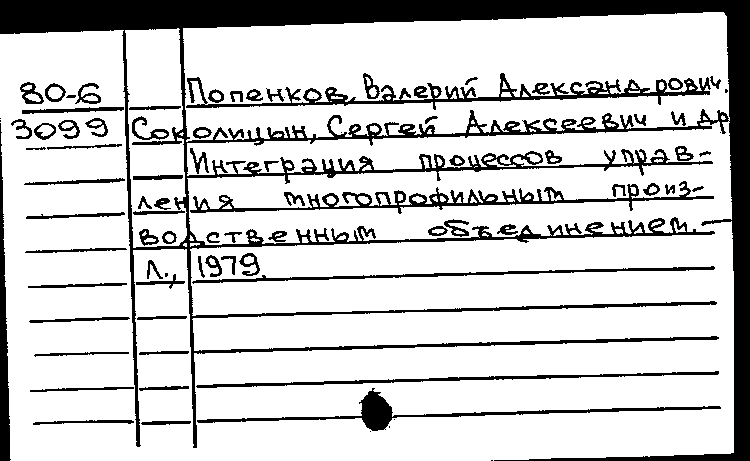 80-6 Попенков, Валерий Александрович.
3099 Соколицын, Сергей Алексеевич и др
Интеграция процессов управ-
ления многопрофильным произ-
водственным объединением. —
Л., 1979.